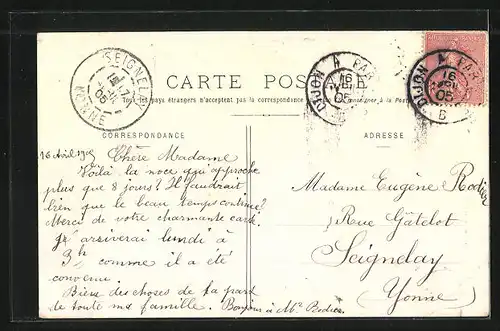 SEIGNELAY
17
AVRIL
05
YONNE
CARTE POSTALE
Tous les pays étrangers n'acceptent pas la correspondance
se renseigner à la Poste
DIJON A PAR
16
AVRIL
05
B
DIJON A PAR
16
AVRIL
05
B
CORRESPONDANCE
ADRESSE
16 Avril 1905 Chère Madame
Voilà la noce qui approche
plus que 8 jours? Il faudrait
bien que le beau temps continue?
Merci de votre charmante carte
arriverai lundi à
3h comme il a été
convenu.
Bien des choses de la part
de toute ma famille. Bonjour à Mr Rodier
Madame Eugène Rodier
Rue Gâtelot
Seignelay
(Yonne)